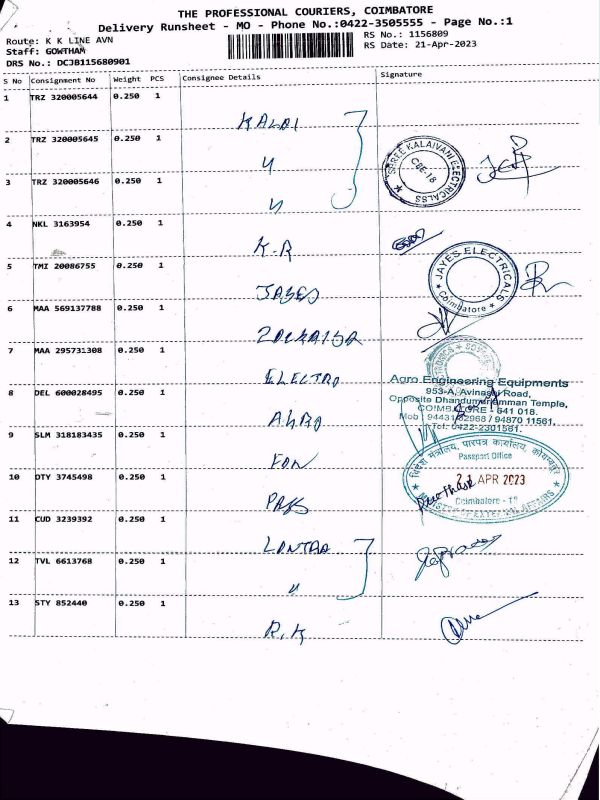 THE PROFESSIONAL COURIERS, COIMBATORE
Delivery Runsheet - MO - Phone No.:0422-3505555 - Page No.:1
Route: K K LINE AVN
RS No.: 1156809
Staff: GOWTHAM
RS Date: 21-Apr-2023
DRS No.: DCJB115680901
S No Consignment No Weight PCS Consignee Details Signature
1 TRZ 320005644 0.250 1 KALAI
2 TRZ 320005645 0.250 1 "
SHREE KALAIVANI ELECTRICALSS
CBE-18
3 TRZ 320005646 0.250 1 "
4 NKL 3163954 0.250 1 K-R
5 TMI 20086755 0.250 1 JAYES
JAYES ELECTRICALS
Coimbatore
6 MAA 569137788 0.250 1
7 MAA 295731308 0.250 1 ELECTRO
Agro Engineering Equipments
953-A, Avinashi Road,
Opposite Dhandumariamman Temple,
COIMBATORE - 641 018.
Tel: 0422-2301561.
8 DEL 600028495 0.250 1 AGRO
9 SLM 318183435 0.250 1
विदेश मंत्रालय, पारपत्र कार्यालय, कोयम्बतूर
Passport Office
21 APR 2023
Coimbatore - 18
MINISTRY OF EXTERNAL AFFAIRS
10 DTY 3745498 0.250 1 PASS
11 CUD 3239392 0.250 1
12 TVL 6613768 0.250 1 "
13 STY 852440 0.250 1 R.K